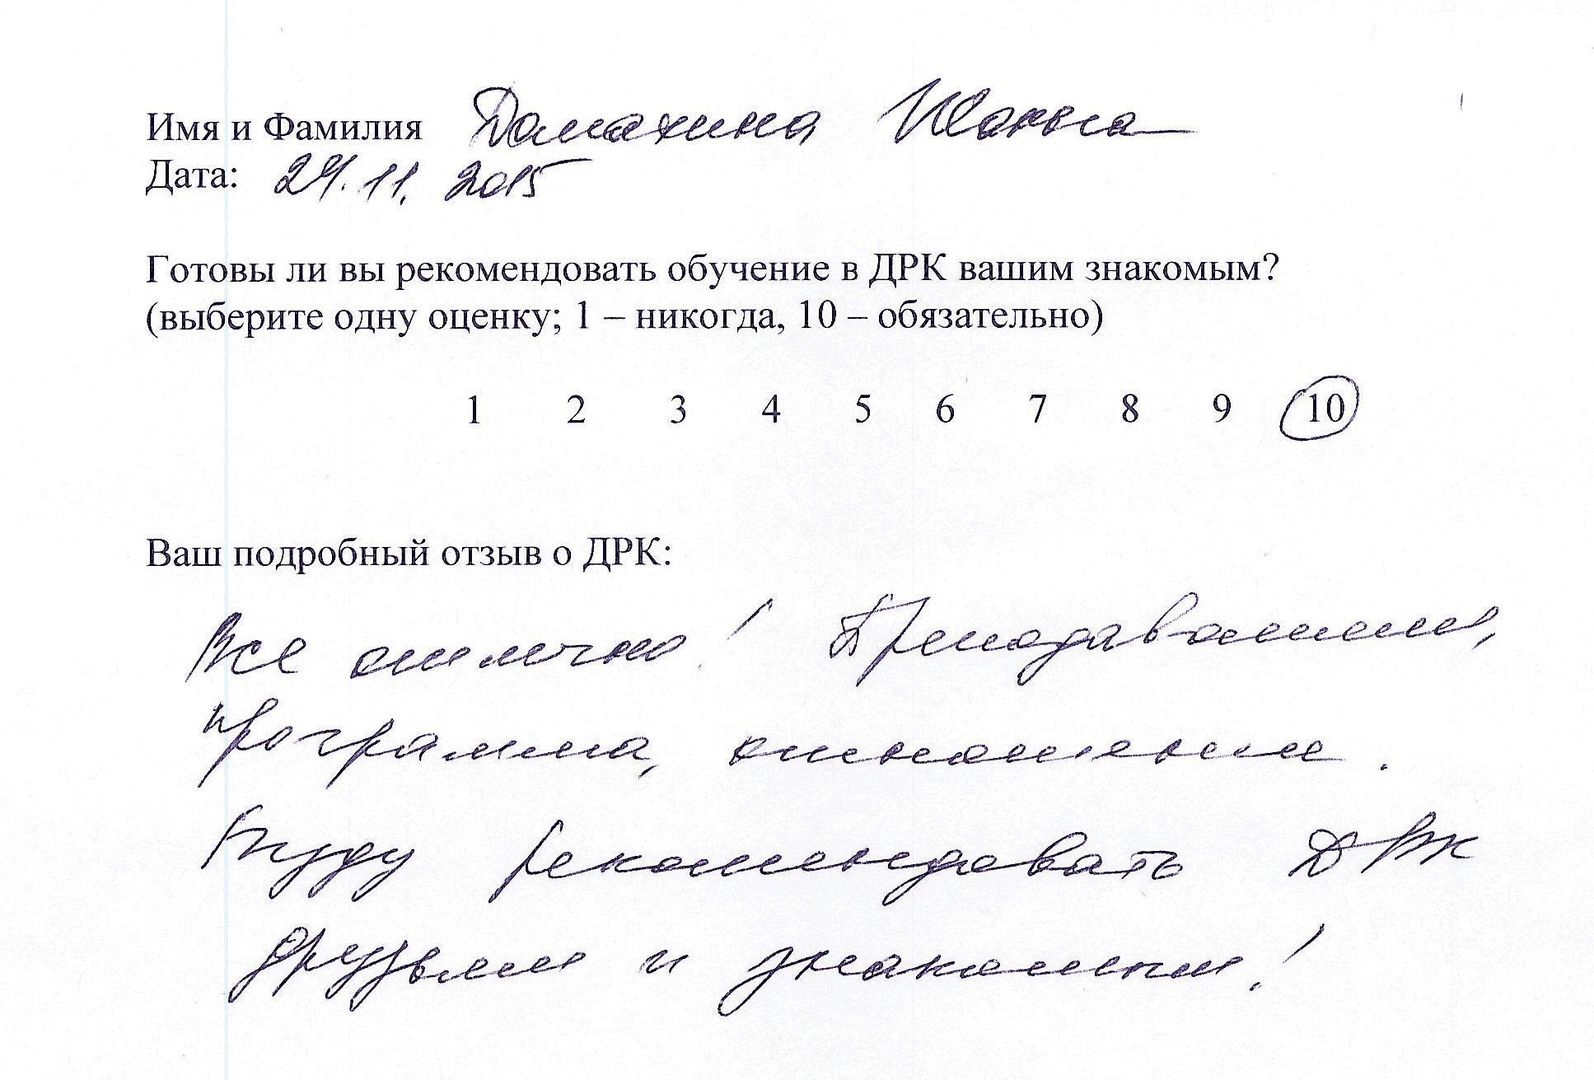 Имя и Фамилия Домахина Жанна
Дата: 24.11.2015
Готовы ли вы рекомендовать обучение в ДРК вашим знакомым?
(выберите одну оценку; 1 – никогда, 10 – обязательно)
1 2 3 4 5 6 7 8 9 10
Ваш подробный отзыв о ДРК:
Все отлично! Преподаватели,
программа, отношение.
Буду рекомендовать ДРК
друзьям и знакомым!